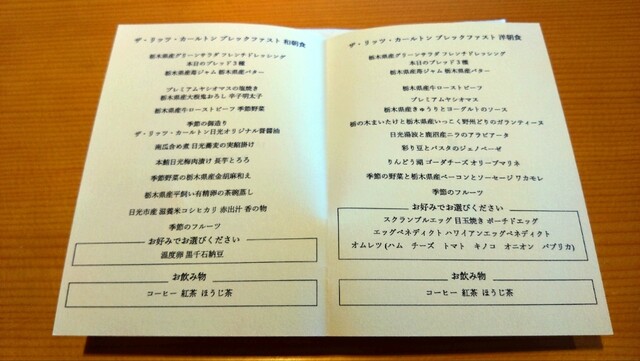 ザ・リッツ・カールトン ブレックファスト 和朝食
栃木県産グリーンサラダ フレンチドレッシング
本日のブレッド3種
栃木県産苺ジャム 栃木県産バター
プレミアムヤシオマスの塩焼き
栃木県産大根鬼おろし 辛子明太子
栃木県産牛ローストビーフ 季節野菜
季節の御造り
ザ・リッツ・カールトン日光オリジナル醤油
南瓜含め煮 日光蕎麦の実餡掛け
本鮪日光梅肉漬け 長芋とろろ
季節野菜の栃木県産金胡麻和え
栃木県産平飼い有精卵の茶碗蒸し
日光市産 滋養米コシヒカリ 赤出汁 香の物
季節のフルーツ
お好みでお選びください
温度卵 黒千石納豆
お飲み物
コーヒー 紅茶 ほうじ茶
ザ・リッツ・カールトン ブレックファスト 洋朝食
栃木県産グリーンサラダ フレンチドレッシング
本日のブレッド3種
栃木県産苺ジャム 栃木県産バター
栃木県産牛ローストビーフ
プレミアムヤシオマス
栃木県産きゅうりとヨーグルトのソース
栃の木まいたけと栃木県産いっこく野州どりのガランティーヌ
日光湯波と鹿沼産ニラのアラビアータ
彩り豆とパスタのジェノベーゼ
りんどう湖 ゴーダチーズ オリーブマリネ
季節の野菜と栃木県産ベーコンとソーセージ ワカモレ
季節のフルーツ
お好みでお選びください
スクランブルエッグ 目玉焼き ポーチドエッグ
エッグベネディクト ハワイアンエッグベネディクト
オムレツ (ハム チーズ トマト キノコ オニオン パプリカ)
お飲み物
コーヒー 紅茶 ほうじ茶